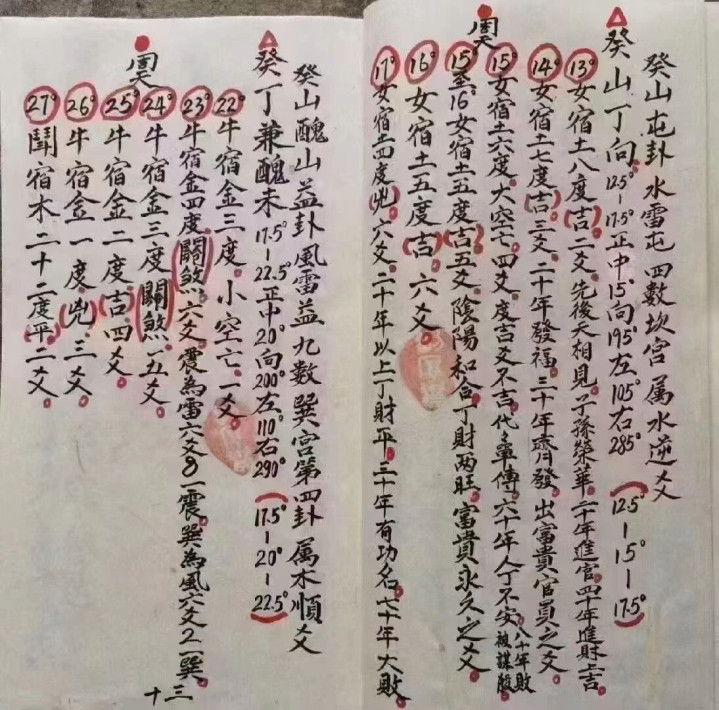 癸山屯卦水雷屯四數坎宮屬水逆爻
癸山丁向12.5°-17.5°正中15°向195°左105°右285°(12.5°-15°-17.5°)
周天
13°女宿土八度(吉)二爻。先後天相見。子孫榮華。二十年進官。四十年進財上吉。
14°女宿土七度(吉)三爻二十年發福。三十年齊發出富貴官員之爻。
15°女宿土六度。大空亡。四爻。度吉爻不吉。代代單傳六十年人丁不安。八十年敗。
15°至16°女宿土五度(吉)五爻。陰陽和合丁財两旺。富貴永久之爻。
16°女宿土五度(吉)六爻。
17°女宿土四度(兇)六爻。二十年以上丁財平。三十年有功名。七十年大敗。
癸山醜山益卦風雷益九數巽宮第四卦屬木順爻
癸丁兼醜未17.5°-22.5°正中20°向200°左110°右290°(17.5°-20°-22.5°)
周天
22°牛宿金三度。小空亡。一爻。
23°牛宿金四度(關煞)六爻。震為雷六爻8一震。巽為風六爻2一巽。
24°牛宿金三度(關煞)五爻。
25°牛宿金二度(吉)四爻
26°牛宿金一度(兇)三爻
27°鬪宿木二十二度(平)二爻。
十三